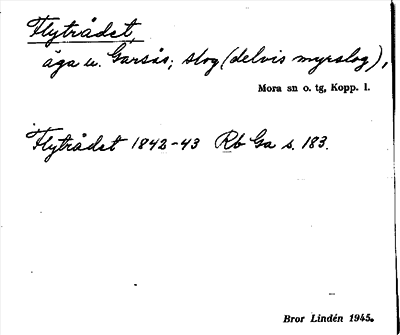 Flyträdet,
äga u. Garsås; slog (delvis myrslog),
Mora sn o. tg, Kopp. l.
Flyträdet 1842-43 Rb Ga s. 183.
Bror Lindén 1945.